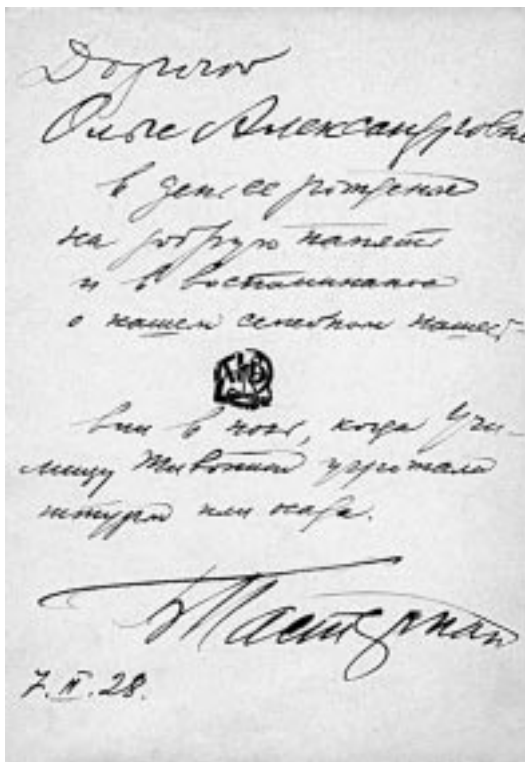 Дорогой
Ольге Александровне
в день ее рождения
на добрую память
и в воспоминание
о нашем семейном нашест-
вии в ночь, когда Учи-
лищу Живописи угрожали
штурм или осада.
БПастернак
7. IV. 28.